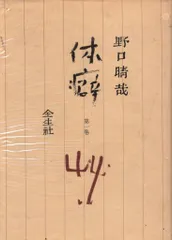 野口晴哉
体癖
第一巻
全生社